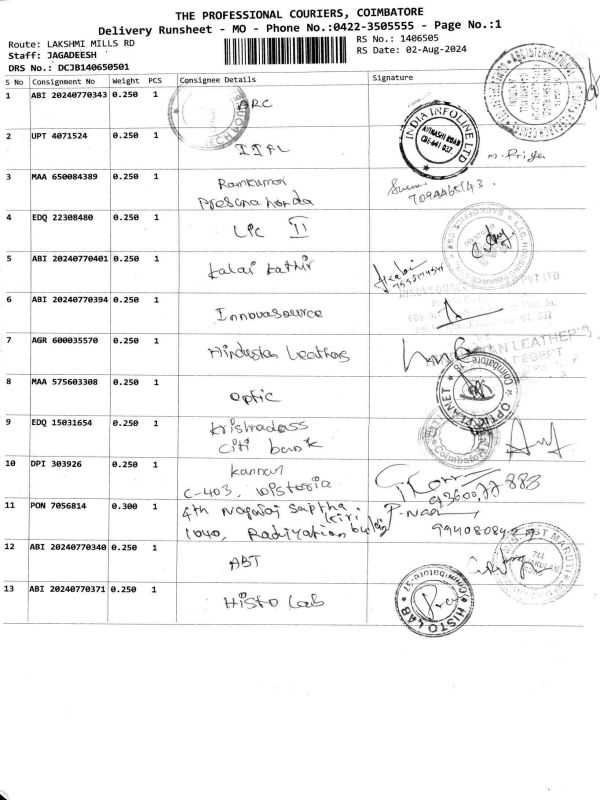 THE PROFESSIONAL COURIERS, COIMBATORE
Delivery Runsheet - MO - Phone No.:0422-3505555 - Page No.:1
Route: LAKSHMI MILLS RD
RS No.: 1406505
Staff: JAGADEESH
RS Date: 02-Aug-2024
DRS No.: DCJB140650501
S No Consignment No Weight PCS Consignee Details Signature
1 ABI 20240770343 0.250 1 ARC
2 UPT 4071524 0.250 1 IIFL
INDIA INFOLINE LTD
AVINASHI ROAD
CBE-641 037
M. Priya
3 MAA 650084389 0.250 1 Ramkumar
Prasana honda
4 EDQ 22308480 0.250 1 LIC II
5 ABI 20240770401 0.250 1 Kalai Kathir
6 ABI 20240770394 0.250 1 Innovasource
7 AGR 600035570 0.250 1 Hindustan Leathers
8 MAA 575603308 0.250 1 Optic
OPTIC PLANET
Coimbatore
9 EDQ 15031654 0.250 1 Krishnadass
Citi bank
Coimbatore
10 DPI 303926 0.250 1 Kannan
C-403, Wistoria
11 PON 7056814 0.300 1 4th Nagaraj Saptha
1040, Radiyation
12 ABI 20240770340 0.250 1 ABT
13 ABI 20240770371 0.250 1 Histo Lab
HISTO LAB
Coimbatore-37